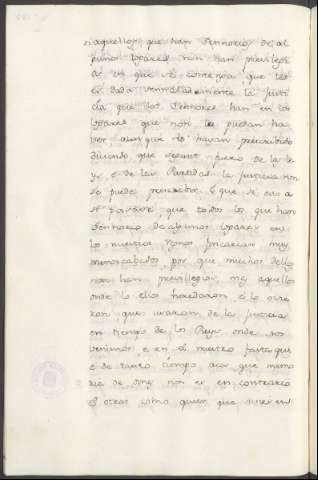 si aquellos que han Sennorio de al
gunos logares non han previllejo
en que se contenga que les
es dada sennaladamente la justi
cia que los Sennores han en los
logares que non la puedan ha
ver aunque la hayan prescribido
diciendo que segunt fuero de la le
y, é de las Partidas la justicia non
se puede prescribir é que si esto
asi pasase, que todos los que han
Sennorio de algunos logares en
los nuestros Regnos fincarian muy
menoscabados, por que muchos dellos
non han previllegios, nin aquellos
onde lo ellos heredaron, é lo ovie
ron que usaron de la justicia
en tiempo de los Reys onde nos
venimos é en el nuestro fasta aqui
é de tanto tiempo acá que memo
ria de omes non es en contrario
é otros como quier que ovieren